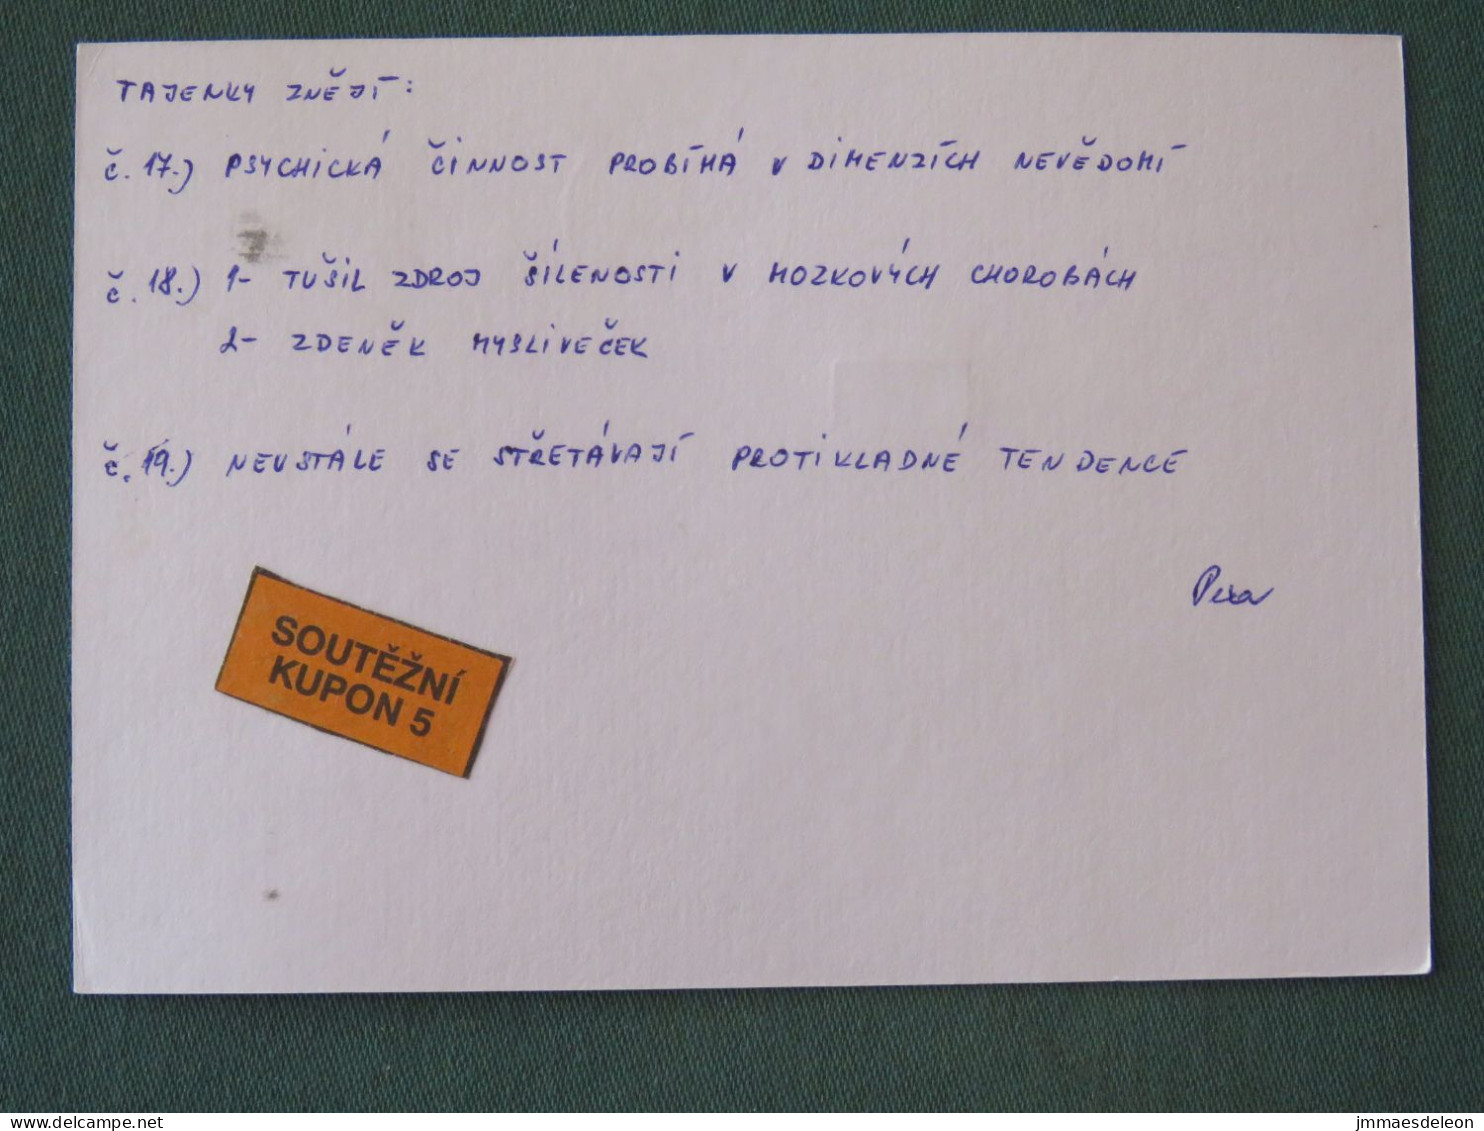 TAJENKY ZNĚJÍ:
č. 17.) PSYCHICKÁ ČINNOST PROBÍHÁ V DIMENZÍCH NEVĚDOMÍ
č. 18.) 1- TUŠIL ZDROJ ŠÍLENOSTI V MOZKOVÝCH CHOROBÁCH
2- ZDENĚK MYSLIVEČEK
č. 19.) NEUSTÁLE SE STŘETÁVAJÍ PROTIKLADNÉ TENDENCE
SOUTĚŽNÍ
KUPON 5
https://www.delcampe.net
jmmaesdeleon